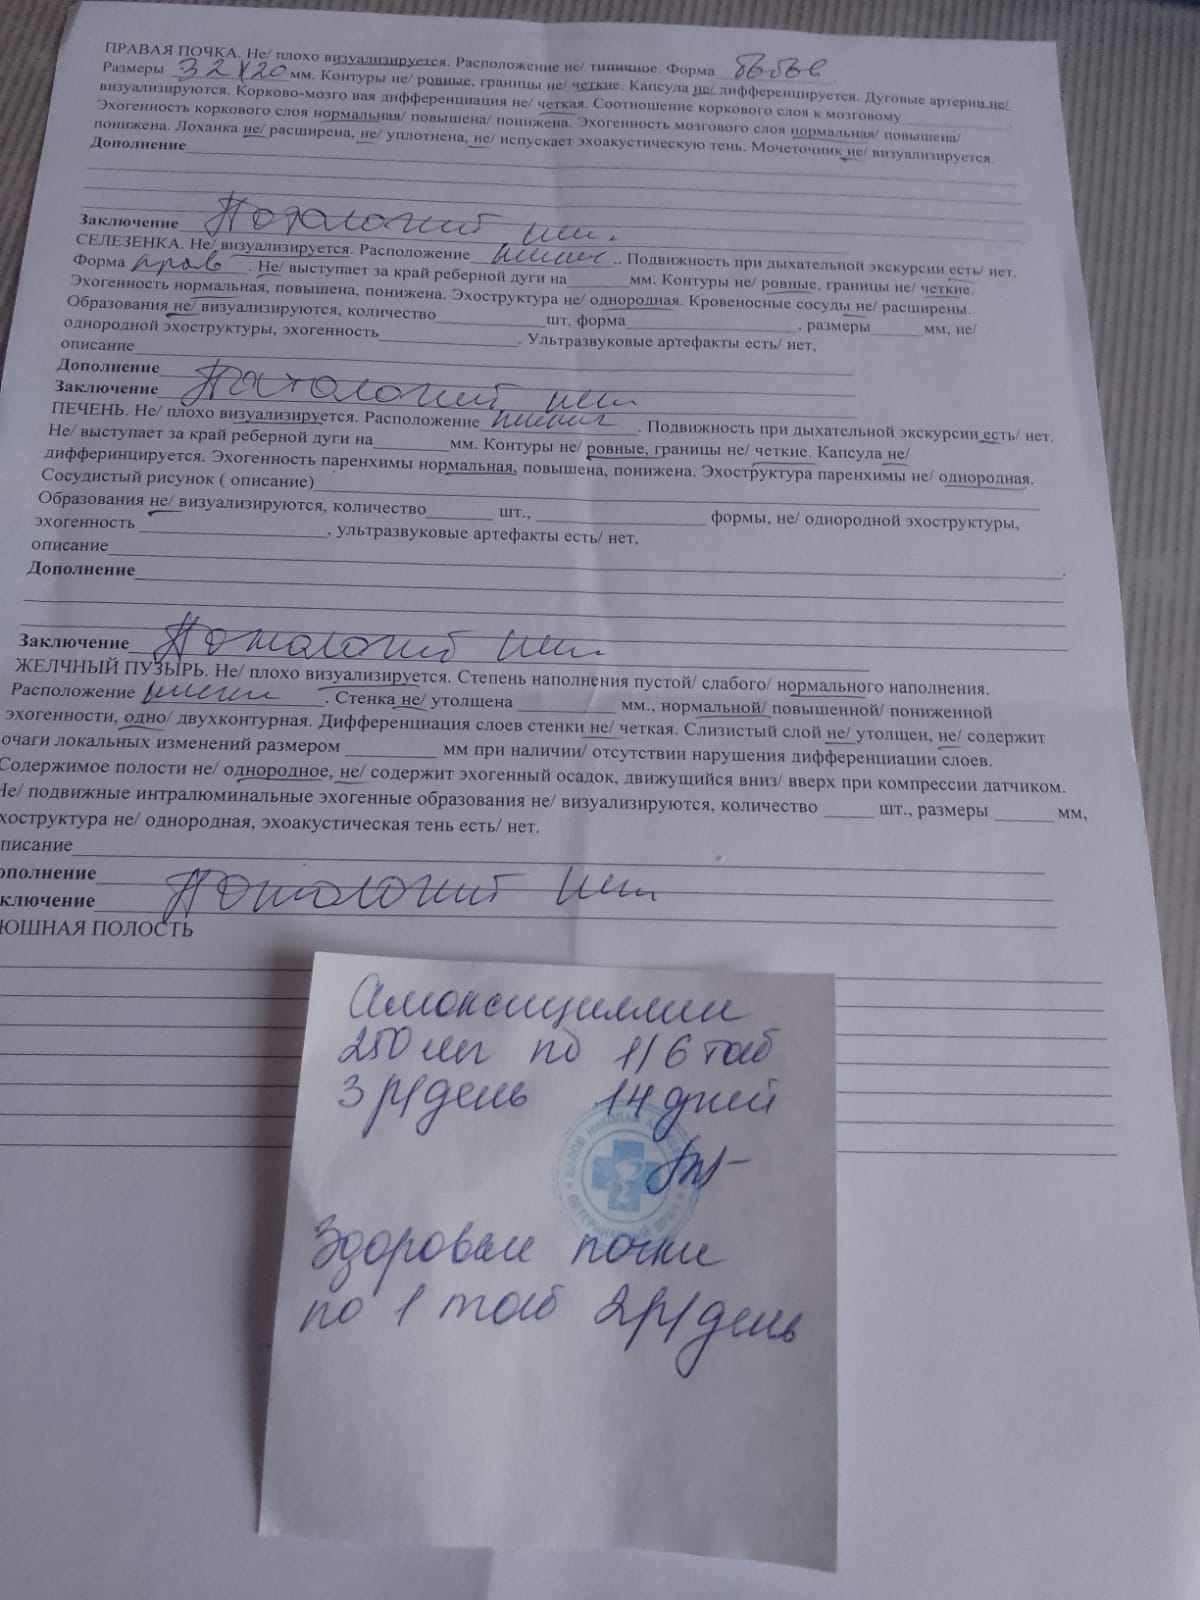 ПРАВАЯ ПОЧКА. Не/ плохо визуализируется. Расположение не/ типичное. Форма бобов
Размеры 32х20 мм. Контуры не/ ровные, границы не/ четкие. Капсула не/ дифференцируется. Дуговые артерии не/
визуализируются. Корково-мозго вая дифференциация не/ четкая. Соотношение коркового слоя к мозговому
Эхогенность коркового слоя нормальная/ повышена/ понижена. Эхогенность мозгового слоя нормальная/ повышена/
понижена. Лоханка не/ расширена, не/ уплотнена, не/ испускает эхоакустическую тень. Мочеточник не/ визуализируется.
Дополнение
Заключение Патологий нет.
СЕЛЕЗЕНКА. Не/ визуализируется. Расположение типич.. Подвижность при дыхательной экскурсии есть/ нет.
Форма прав. Не/ выступает за край реберной дуги на мм. Контуры не/ ровные, границы не/ четкие.
Эхогенность нормальная, повышена, понижена. Эхоструктура не/ однородная. Кровеносные сосуды не/ расширены.
Образования не/ визуализируются, количество шт, форма , размеры мм, не/
однородной эхоструктуры, эхогенность . Ультразвуковые артефакты есть/ нет,
описание
Дополнение
Заключение Патологий нет
ПЕЧЕНЬ. Не/ плохо визуализируется. Расположение типич . Подвижность при дыхательной экскурсии есть/ нет.
Не/ выступает за край реберной дуги на мм. Контуры не/ ровные, границы не/ четкие. Капсула не/
дифферинцируется. Эхогенность паренхимы нормальная, повышена, понижена. Эхоструктура паренхимы не/ однородная.
Сосудистый рисунок ( описание)
Образования не/ визуализируются, количество шт., формы, не/ однородной эхоструктуры,
эхогенность , ультразвуковые артефакты есть/ нет,
описание .
Дополнение
Заключение Патологий нет
ЖЕЛЧНЫЙ ПУЗЫРЬ. Не/ плохо визуализируется. Степень наполнения пустой/ слабого/ нормального наполнения.
Расположение типичн . Стенка не/ утолщена мм., нормальной/ повышенной/ пониженной
эхогенности, одно/ двухконтурная. Дифференциация слоев стенки не/ четкая. Слизистый слой не/ утолщен, не/ содержит
очаги локальных изменений размером мм при наличии/ отсутствии нарушения дифференциации слоев.
Содержимое полости не/ однородное, не/ содержит эхогенный осадок, движущийся вниз/ вверх при компрессии датчиком.
Не/ подвижные интралюминальные эхогенные образования не/ визуализируются, количество шт., размеры мм,
хоструктура не/ однородная, эхоакустическая тень есть/ нет.
писание
ополнение
ключение Патологий нет
ЮШНАЯ ПОЛОСТЬ
Амоксициллин
250 мг по 1/6 таб
3 р/день 14 дней
Здоровые почки
по 1 таб 2р/день